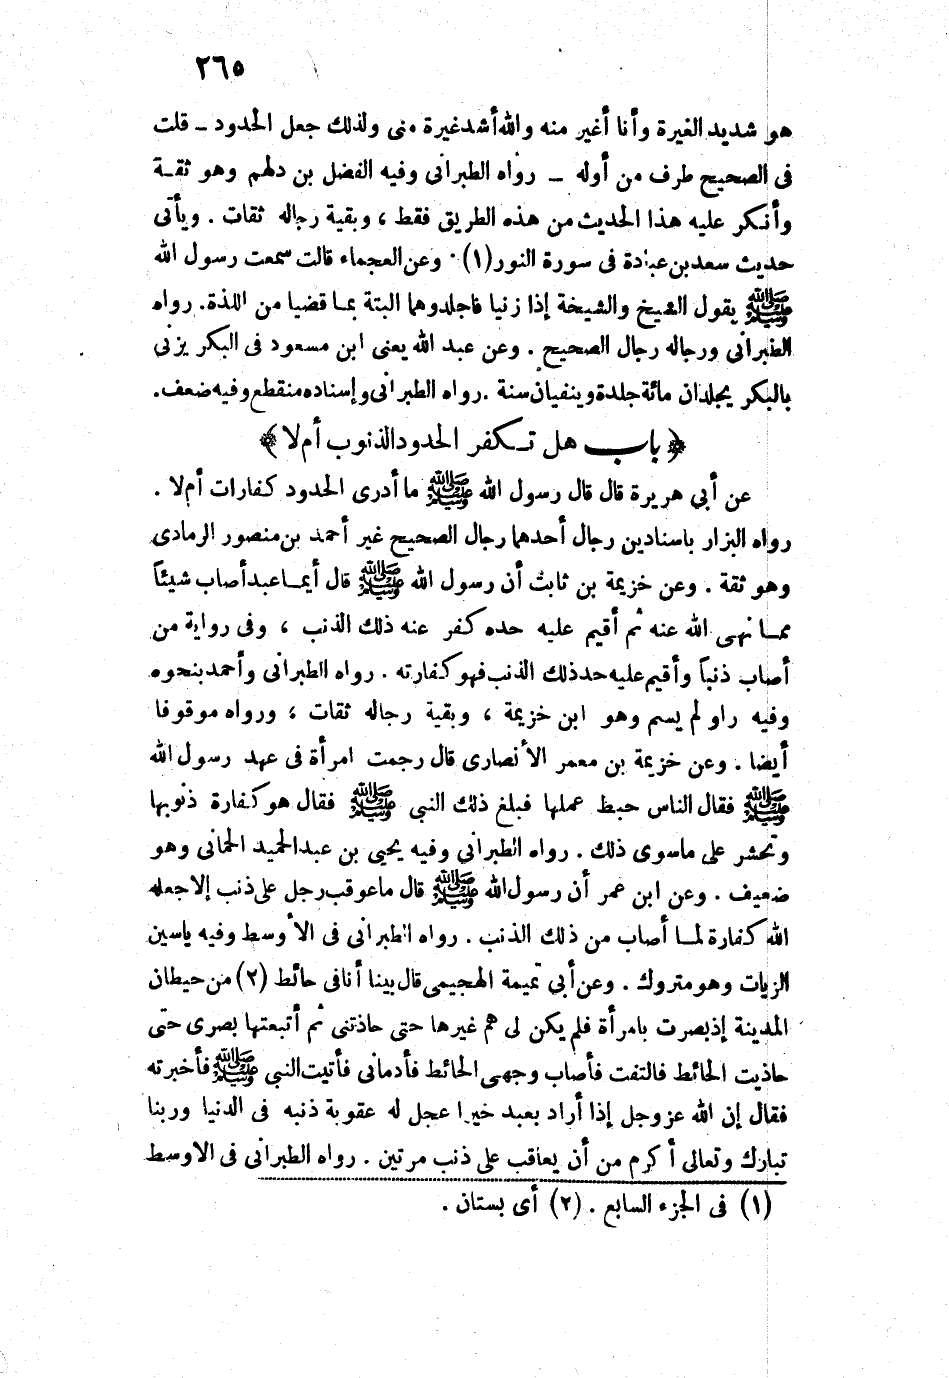 ٢٦٥
هو شديد الغيرة وأنا أغير منه والله أشد غيرة منى ولذلك جعل الحدود ــ قلت
فى الصحيح طرف من أوله ــ رواه الطبرانى وفيه الفضل بن دلهم وهو ثقة
وأنكر عليه هذا الحديث من هذه الطريق فقط ، وبقية رجاله ثقات . ويأتى
حديث سعد بن عبادة فى سورة النور (١) . وعن العجماء قالت سمعت رسول الله
ﷺ يقول الشيخ والشيخة إذا زنيا فاجلدوهما البتة بما قضيا من اللذة. رواه
الطبرانى ورجاله رجال الصحيح . وعن عبد الله يعنى ابن مسعود فى البكر يزنى
بالبكر يجلدان مائة جلدة وينفيان سنة . رواه الطبرانى وإسناده منقطع وفيه ضعف.
﴿ باب هل تكفر الحدود الذنوب أم لا ﴾
عن أبي هريرة قال قال رسول الله ﷺ ما أدرى الحدود كفارات أم لا .
رواه البزار باسنادين رجال أحدهما رجال الصحيح غير أحمد بن منصور الرمادى
وهو ثقة . وعن خزيمة بن ثابت أن رسول الله ﷺ قال أيما عبد أصاب شيئاً
مما نهى الله عنه ثم أقيم عليه حده كفر عنه ذلك الذنب ، وفى رواية من
أصاب ذنباً وأقيم عليه حد ذلك الذنب فهو كفارته . رواه الطبرانى وأحمد بنحوه
وفيه راو لم يسم وهو ابن خزيمة ، وبقية رجاله ثقات ، ورواه موقوفا
أيضا . وعن خزيمة بن معمر الأنصارى قال رجمت امرأة فى عهد رسول الله
ﷺ فقال الناس حبط عملها فبلغ ذلك النبي ﷺ فقال هو كفارة ذنوبها
وتحشر على ماسوى ذلك . رواه الطبرانى وفيه يحيى بن عبد الحميد الحمانى وهو
ضعيف . وعن ابن عمر أن رسول الله ﷺ قال ما عوقب رجل على ذنب إلا جعله
الله كفارة لما أصاب من ذلك الذنب . رواه الطبرانى فى الأوسط وفيه ياسين
الزيات وهو متروك . وعن أبي تميمة الهجيمى قال بينا أنا فى حائط (٢) من حيطان
المدينة إذ بصرت بامرأة فلم يكن لى هم غيرها حتى حاذتنى ثم أتبعتها بصرى حتى
حاذيت الحائط فالتفت فأصاب وجهى الحائط فأدمانى فأتيت النبي ﷺ فأخبرته
فقال إن الله عز وجل إذا أراد بعبد خيرا عجل له عقوبة ذنبه فى الدنيا وربنا
تبارك وتعالى أكرم من أن يعاقب على ذنب مرتين . رواه الطبرانى فى الاوسط
(١) فى الجزء السابع . (٢) أى بستان .